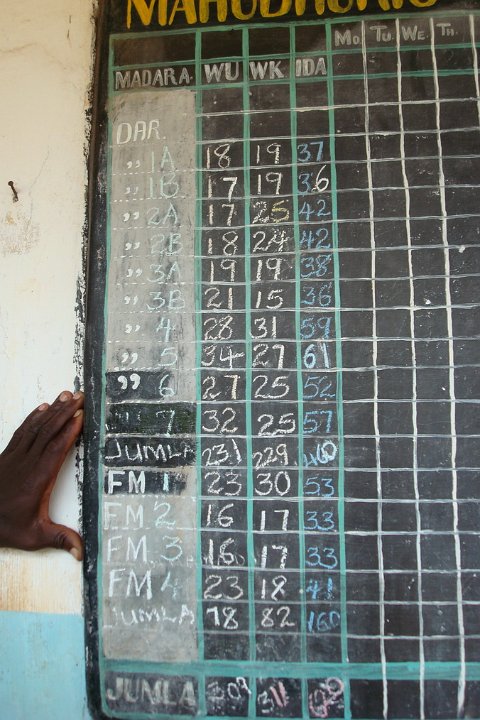 MAHUDHURIO
MADARA. WU WK IDA Mo. Tu. We. Th.
DAR.
,, 1A 18 19 37
,, 1B 17 19 36
,, 2A 17 25 42
,, 2B 18 24 42
,, 3A 19 19 38
,, 3B 21 15 36
,, 4 28 31 59
,, 5 34 27 61
,, 6 27 25 52
,, 7 32 25 57
JUMLA 231 229 460
FM 1 23 30 53
FM 2 16 17 33
FM 3 16 17 33
FM 4 23 18 41
JUMLA 78 82 160
JUMLA 309 311 620